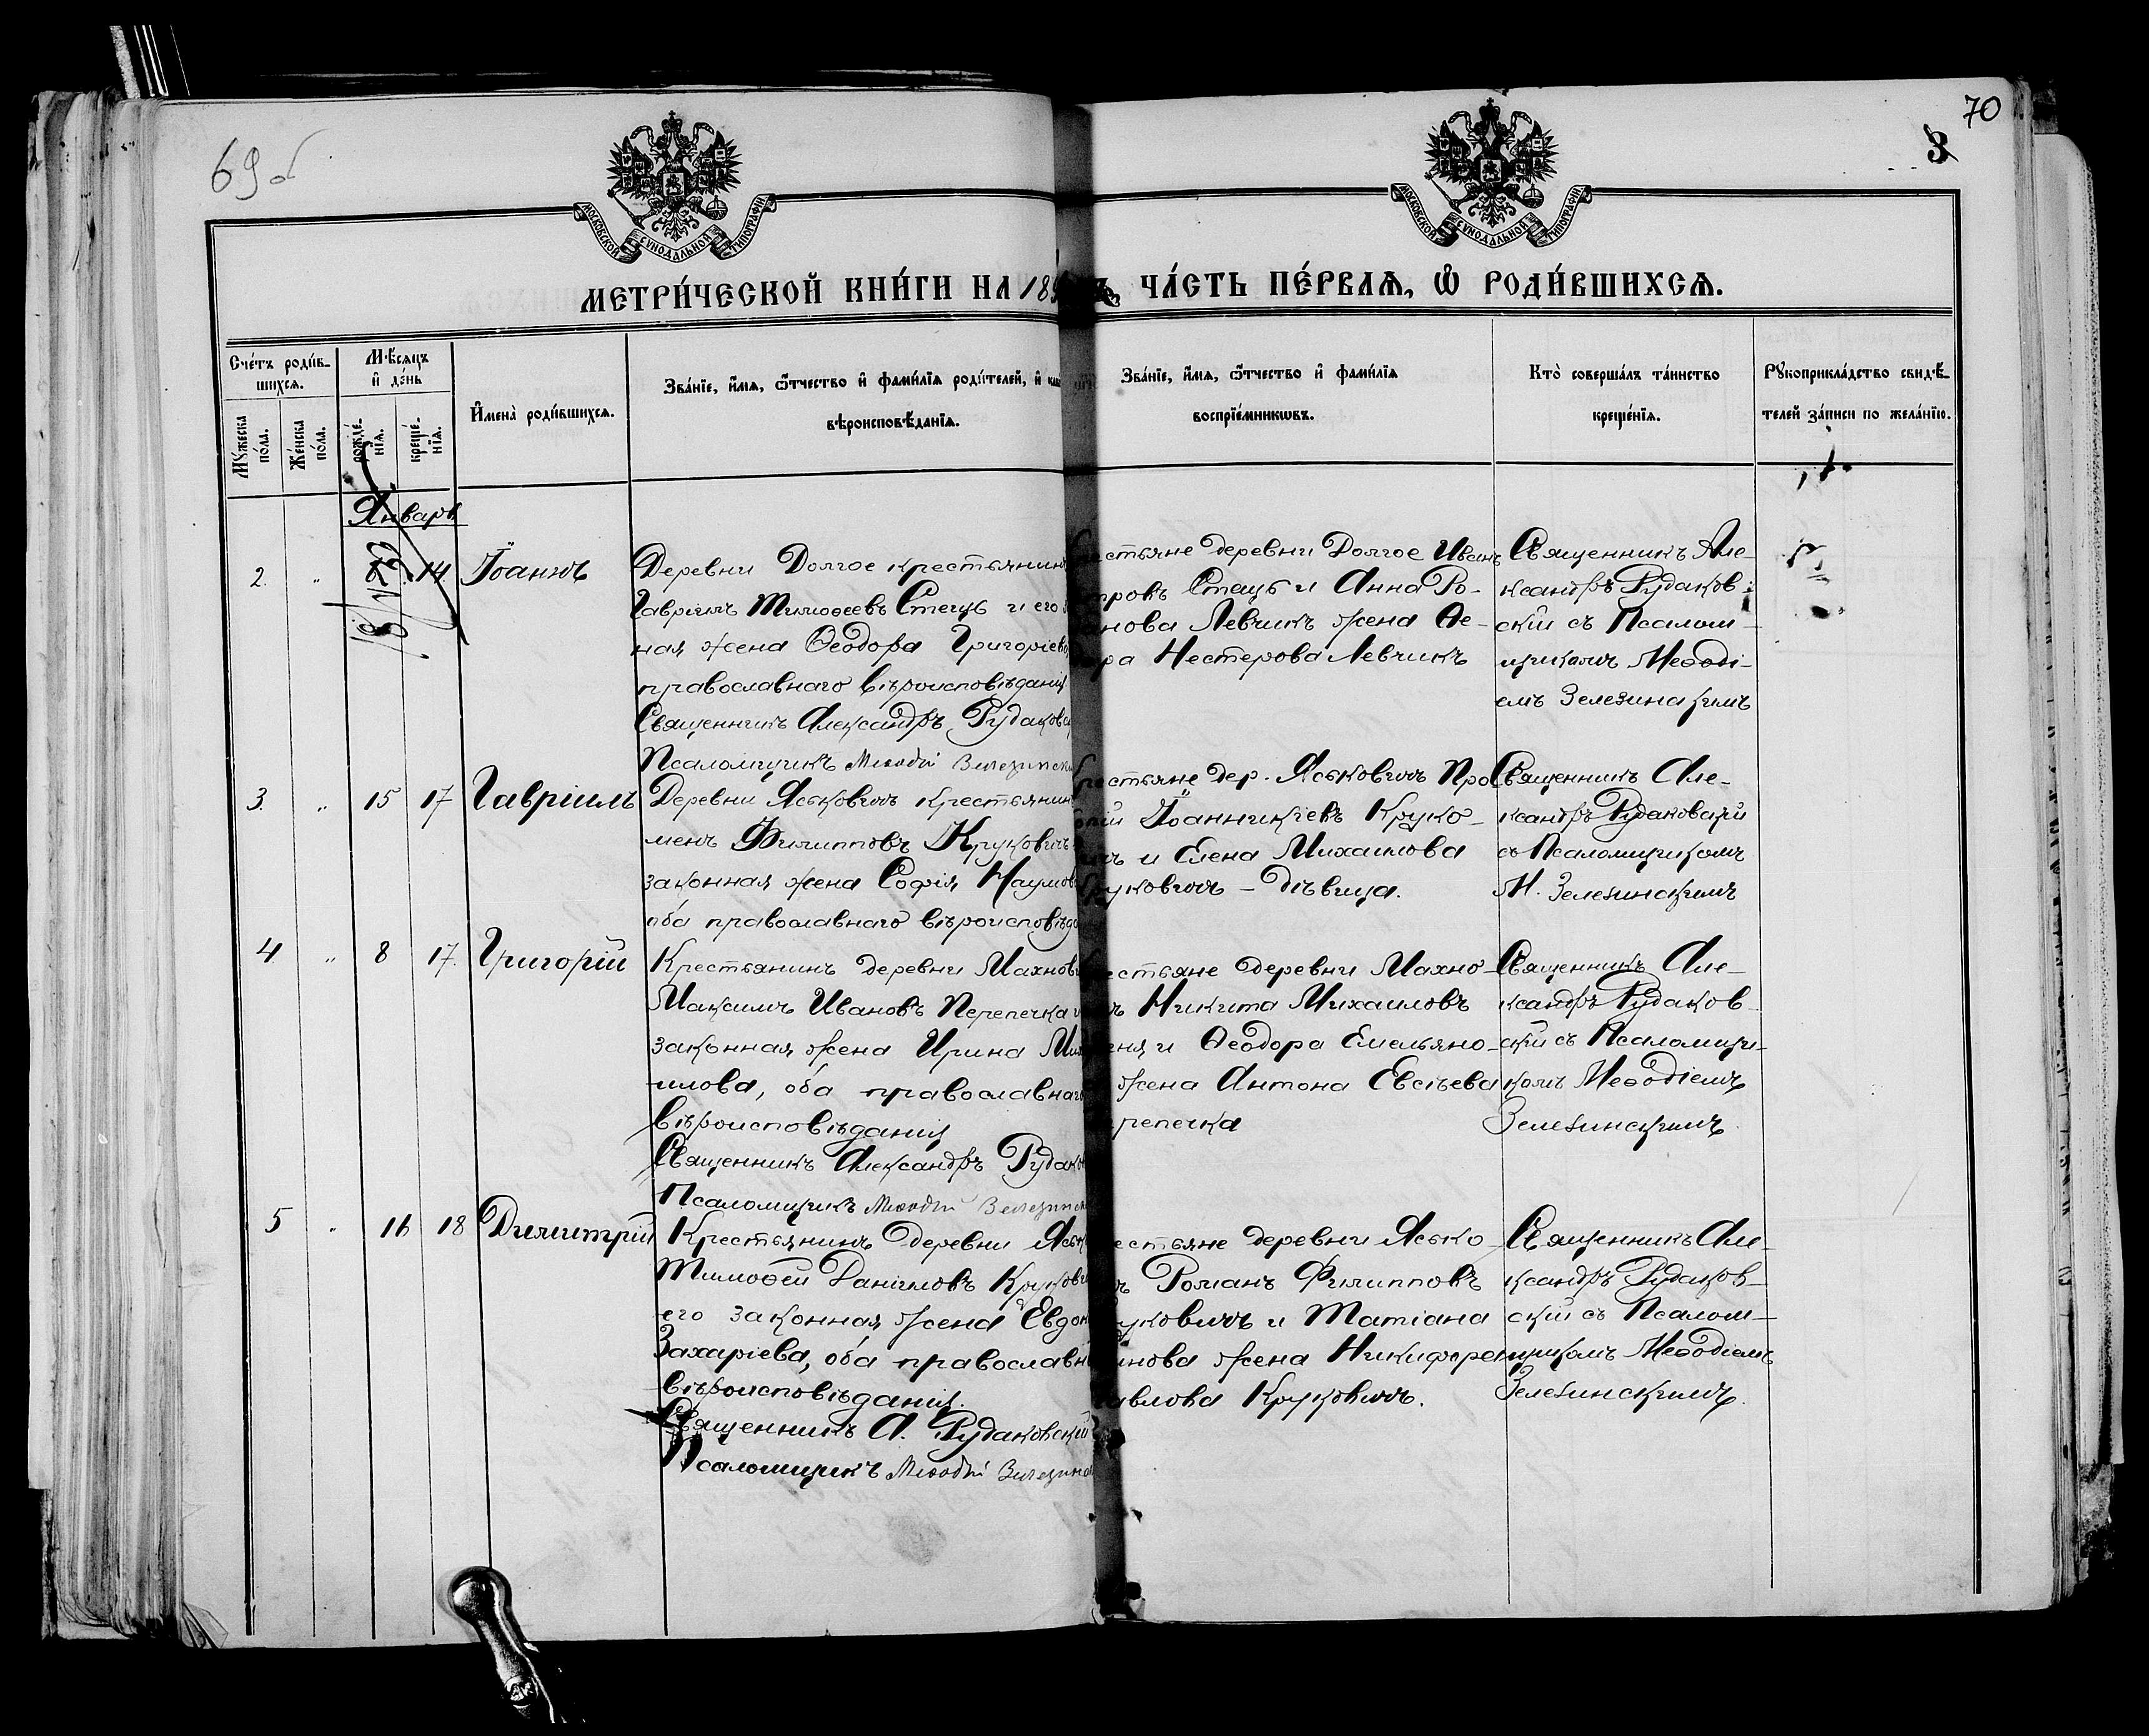 69об
70
3
МОСКОВСКОЙ СѴНОДАЛЬНОЙ ТИПОГРАФІИ
МОСКОВСКОЙ СѴНОДАЛЬНОЙ ТИПОГРАФІИ
МЕТРИ́ЧЕСКОЙ КНИ́ГИ НА 189
ЧА́СТЬ ПЕ́РВАѦ, Ѡ҆ РОДИ́ВШИХСѦ.
Сче́тъ роди́в-
шихсѧ.
Мꙋ́жеска
по́ла.
Же́нска
по́ла.
Мѣ́сѧцъ
и҆ де́нь
рожде́-
нїѧ.
креще́-
нїѧ.
И҆мена̀ роди́вшихсѧ.
Зва́нїе, и҆́мѧ, ѻ҆́тчество и҆ фами́лїѧ роди́телей, и҆
вѣроисповѣ́данїѧ.
Зва́нїе, и҆́мѧ, ѻ҆́тчество и҆ фами́лїѧ
воспрїе́мникѡвъ.
Кто̀ соверша́лъ та́инство
креще́нїѧ.
Рꙋкоприкла́дство свидѣ́-
телей за́писи по жела́нїю.
Январь
2. „ 14 Іоаннъ
Деревни Долгое крестьянинъ
Гавріилъ Тимоѳеевъ Стецъ и его
ная жена Ѳеодора Григоріев
православнаго вѣроисповѣданія.
Священникъ Александръ Рудаковс
Псаломщикъ Меѳодій Зелезински
стьяне деревни Долгое Иванъ
тровъ Стецъ и Анна Ро-
нова Левчикъ жена Ѳе-
ра Нестерова Левчикъ
Священникъ Але-
ксандръ Рудаков-
скій съ Псалом-
щикомъ Меѳоді-
емъ Зелезинскимъ
3. „ 15 17 Гавріилъ
Деревни Яськовичъ крестьянин
менъ Филипповъ Круковичъ
законная жена Софія Наумов
оба православнаго вѣроисповѣда
рестьяне дер. Яськовичъ Про
опій Іоанникіевъ Круко-
чъ и Елена Михаилова
руковичъ – дѣвица.
Священникъ Але-
ксандръ Рудаковскій
съ Псаломщикомъ
М. Зелезинскимъ
4 „ 8 17. Григорій
Крестьянинъ деревни Махнов
Максимъ Ивановъ Перепечка и
законная жена Ирина Мих
илова, оба православнаг
вѣроисповѣданія
Священникъ Александръ Рудако
Псаломщикъ Меѳодій Зелезинск
естьяне деревни Махно-
ъ Никита Михаиловъ
еня и Ѳеодора Емельяно-
жена Антона Евсѣева
репечка
Священникъ Але-
ксандръ Рудаков-
скій съ Псаломщи-
комъ Меѳодіемъ
Зелезинскимъ.
5 „ 16 18 Димитрій
Крестьянинъ деревни Яськ
Тимоѳей Даніиловъ Кругови
его законная жена Евдок
Захаріева, оба православн
вѣроисповѣданія.
Священникъ А. Рудаковскій
Псаломщикъ Меѳодій Зелезинск
естьяне деревни Ясько-
ъ Романъ Филипповъ
уковичъ и Татіана
инова жена Никифора
авлова Круковичъ.
Священникъ Але-
ксандръ Рудаков-
скій съ Псалом-
щикомъ Меѳодіемъ
Зелезинскимъ.